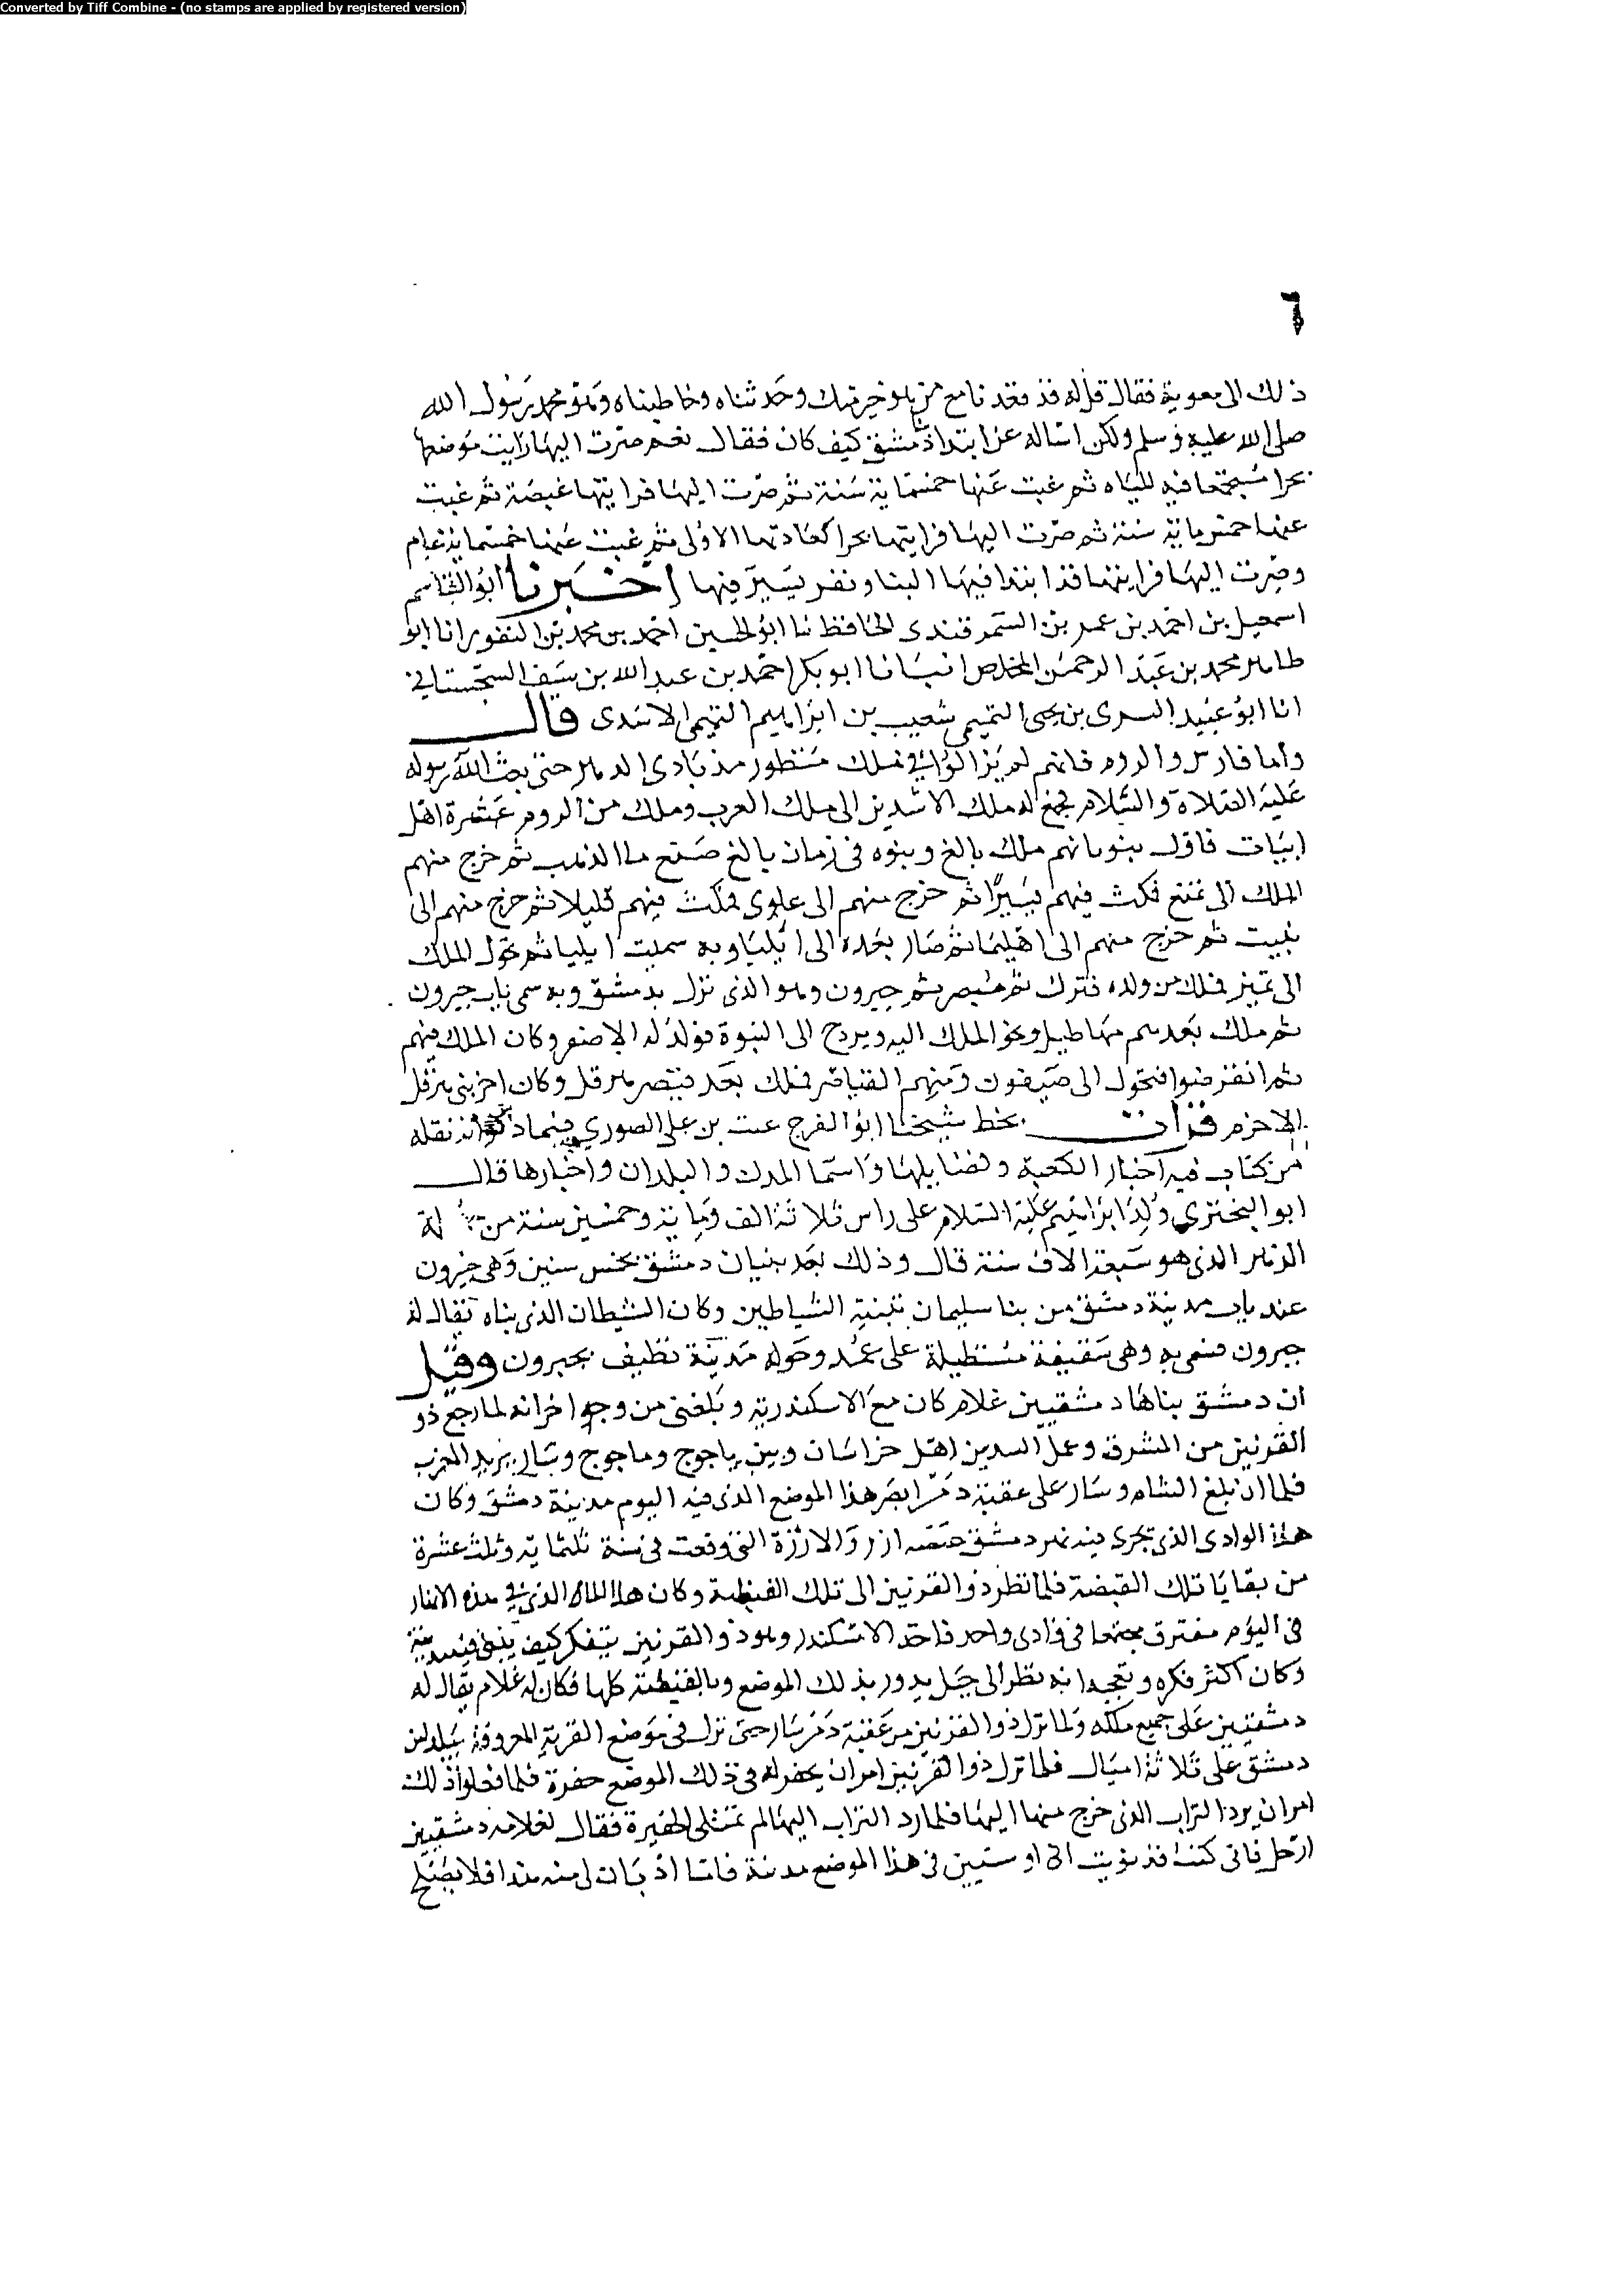 Converted by Tiff Combine - (no stamps are applied by registered version)
٦
ذلك الى معوية فقال قل له قد قعدنا مع من هو خير منك وحدثناه وخاطبناه وهو محمد رسول الله
صلى الله عليه وسلم ولكن اساله عن ابتداء دمشق كيف كان فقال نعم صرت اليها رايت موضعها
بحرا مستجمعا فيه المياه ثم غبت عنها خمسماية سنة ثم صرت اليها فرايتها غيضة ثم غبت
عنها خمس ماية سنة ثم صرت اليها فرايتها بحرا كعادتها الاولى ثم غبت عنها خمسماية عام
وصرت اليها فرايتها قد ابتدا فيها البنا ونفر يسير فيها اخبرنا ابو القاسم
اسمعيل بن احمد بن عمر بن السمرقندى الحافظ نا ابو الحسين احمد بن محمد بن النقور انا ابو
طاهر محمد بن عبد الرحمن المخلص انبانا ابو بكر احمد بن عبد الله بن سيف السجستاني
انا ابو عبيد السرى بن يحيى التميمي شعيب بن ابراهيم التميمي الاسدى قال
واما فارس والروم فانهم لم يزالوا في ملك منظور مذ بادى الدهر حتى بعث الله رسوله
عليه الصلاة والسلام فجمع له ملك الاشدين الى ملك العرب وملك من الروم عشرة اهل
ابيات فاول بنو يافهم ملك بالغ وبنوه فى زمان بالغ صنع ما الذهب ثم خرج منهم
الملك الى فمكث فيهم يسيرا ثم خرج منهم الى علوى فمكث فيهم قليلا ثم خرج منهم الى
ثم خرج منهم الى ثم صار بعده الى ايليا وبه سميت ايليا ثم تحول الملك
الى فملك من ولده ثم ثم جيرون وهو الذى نزل بدمشق وبه سمى باب جيرون
ثم ملك بعدهم مهاطيل ونحو الملك اليه ويردح الى النبوة فولد له الاصفر وكان الملك فيهم
ثم انقرضوا فتحول الى صيفون ومنهم القياصر فملك بعد قيصر هرقل وكان اخر بنى هرقل
الاخرم قرات بخط شيخنا ابو الفرج غيث بن على الصوري فيما ذكر انه نقله
من كتاب فيه اخبار الكعبة وفضايلها واسما المدن والبلدان واخبارها قال
ابو البخترى ولد ابراهيم عليه السلام على راس ثلاثة الف وماية وخمسين سنة من
الدهر الذى هو سبعة الاف سنة قال وذلك بعد بنيان دمشق بخمس سنين وهى جيرون
عند باب مدينة دمشق من بنا سليمان بنية الشياطين وكان الشيطان الذى بناه يقال له
جيرون فسمى به وهى سقيفة مستطيلة على عمد وحوله مدينة تطيف بجيرون وقيل
ان دمشق بناها دمشقيين غلام كان مع الاسكندرية وبلغنى من وجه اخر انه لما رجع ذو
القرنين من المشرق وعمل السد بين اهل خراسان وبين ياجوج وماجوج وسار يريد المغرب
فلما ان بلغ الشام وسار على عقبة دمر ابصر هذا الموضع الذى فيه اليوم مدينة دمشق وكان
هذا الوادى الذى تجرى فيه نهر دمشق غيضه ارز والارزة التى وقعت فى سنة ثلثماية وثلث عشرة
من بقايا تلك القيضة فلما نظر ذو القرنين الى تلك القيضة وكان هذا الماء الذى فى هذه الانهار
فى اليوم مفترق مجتمعا فى وادى واحد فاخذ الاسكندر وهو ذو القرنين يتفكر كيف يبنى فيه مدينة
وكان اكثر فكره وتعجبه انه نظر الى جبل يدور بذلك الموضع وبالغيضة كلها فكان له غلام يقال له
دمشقين على جميع ملكه ولما نزل ذو القرنين من عقبة دمر سار حتى نزل فى موضع القرية المعروفة بيلدا من
دمشق على ثلاثة اميال فلما نزل ذو القرنين امر ان يحفر له فى ذلك الموضع حفرة فلما فعلوا ذلك
امر ان يرد التراب الذى خرج منها اليها فلما رد التراب اليها لم تمتلى الحفيرة فقال لغلامه دمشقيين
ارحل فانى كنت قد نويت ان اوسس فى هذا الموضع مدينة فاما اذ بان لى منه هذا فلا يصلح